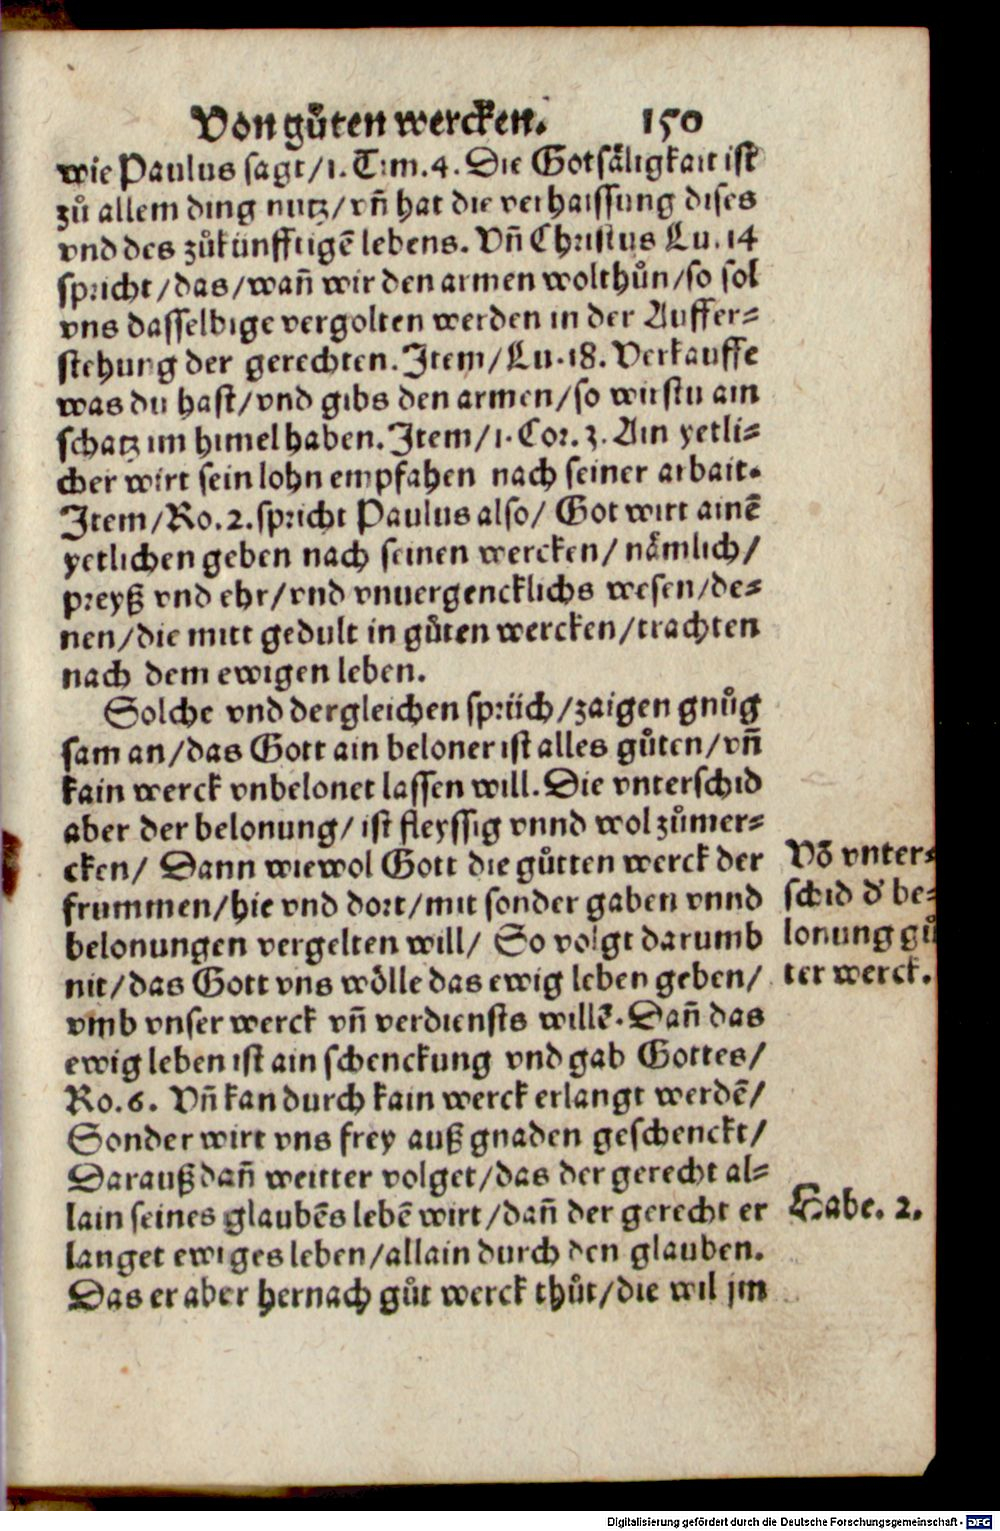 Von gůten wercken. 150
wie Paulus sagt/1. Tim. 4. Die Gotsäligkait ist
zů allem ding nutz/vñ hat die verhaissung dises
vnd des zůkünfftigẽ lebens. Vñ Christus Lu. 14
spricht/das/wañ wir den armen wolthůn/so sol
vns dasselbige vergolten werden in der Auffer-
stehung der gerechten. Item/Lu. 18. Verkauffe
was du hast/vnd gibs den armen/so wirstu ain
schatz im himel haben. Item/1. Cor. 3. Ain yetli-
cher wirt sein lohn empfahen nach seiner arbait.
Item/Ro. 2. spricht Paulus also/ Got wirt ainẽ
yetlichen geben nach seinen wercken/ nämlich/
preyß vnd ehr/vnd vnuergencklichs wesen/de-
nen/die mitt gedult in gůten wercken/trachten
nach dem ewigen leben.
Solche vnd dergleichen sprüch/zaigen gnůg
sam an/das Gott ain beloner ist alles gůten/vñ
kain werck vnbelonet lassen will. Die vnterschid
aber der belonung/ ist fleyssig vnnd wol zůmer-
cken/ Dann wiewol Gott die gůtten werck der
frummen/hie vnd dort/mit sonder gaben vnnd
belonungen vergelten will/ So volgt darumb
nit/das Gott vns wölle das ewig leben geben/
vmb vnser werck vñ verdiensts willẽ. Dañ das
ewig leben ist ain schenckung vnd gab Gottes/
Ro. 6. Vñ kan durch kain werck erlangt werdẽ/
Sonder wirt vns frey auß gnaden geschenckt/
Darauß dañ weitter volget/das der gerecht al-
lain seines glaubẽs lebẽ wirt/dañ der gerecht er
langet ewiges leben/allain durch den glauben.
Das er aber hernach gůt werck thůt/die wil jm
Võ vnter-
schid d' be-
lonung gů
ter werck.
Habe. 2.
Digitalisierung gefördert durch die Deutsche Forschungsgemeinschaft - DFG